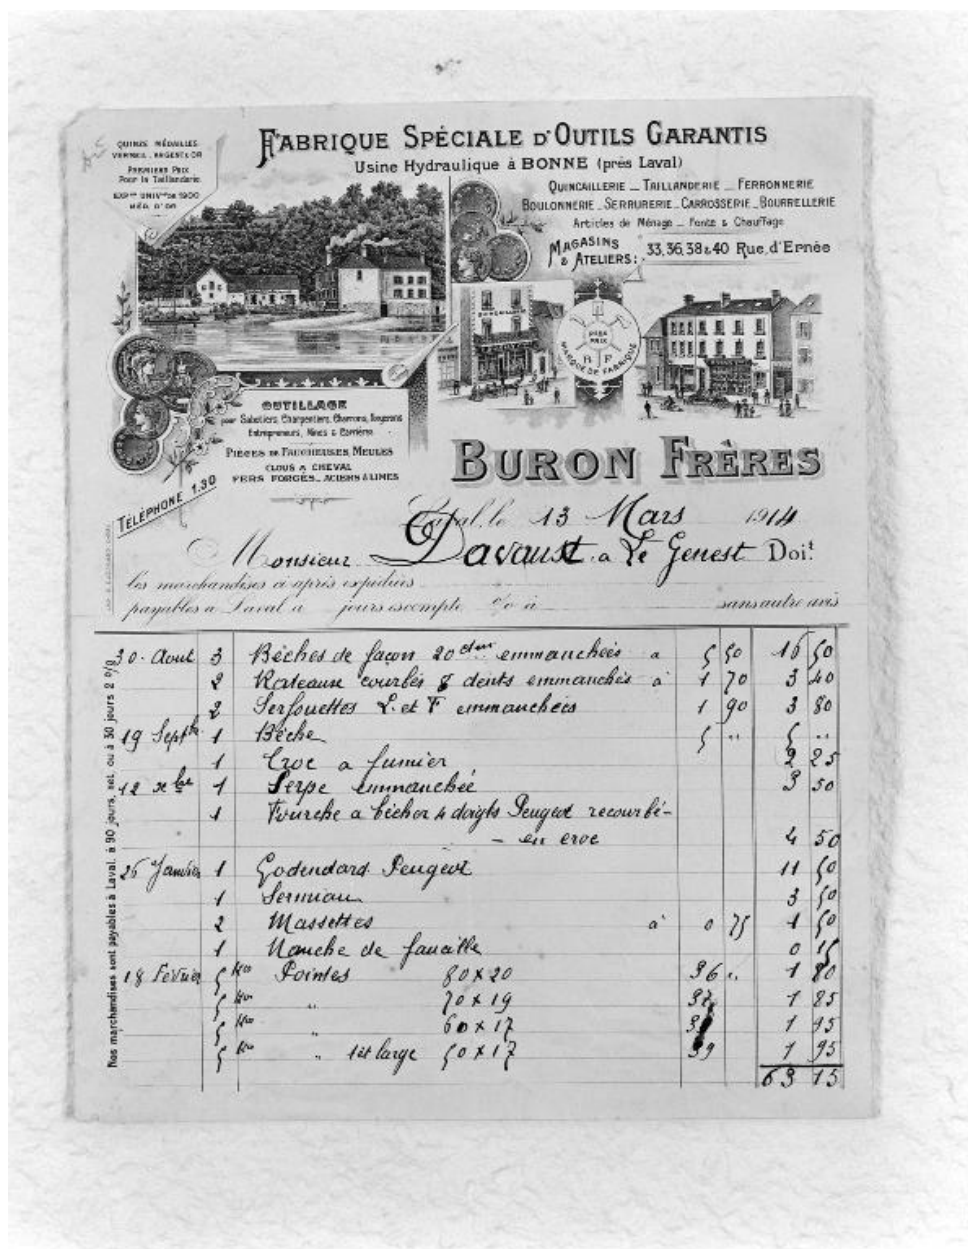 QUINZE MÉDAILLES
VERMEIL, ARGENT & OR
PREMIERS PRIX
Pour la Taillanderie
EXPon UNIVlle DE 1900
MÉD. D'OR
FABRIQUE SPÉCIALE D'OUTILS GARANTIS
Usine Hydraulique à BONNE (près Laval)
QUINCAILLERIE _ TAILLANDERIE _ FERRONNERIE
BOULONNERIE _ SERRURERIE _ CARROSSERIE _ BOURRELLERIE
Articles de Ménage _ Fonte & Chauffage
MAGASINS & ATELIERS: 33, 36, 38 & 40 Rue d'Ernée
QUINCAILLERIE
PRIX
B F
MARQUE DE FABRIQUE
OUTILLAGE
pour Sabotiers, Charpentiers, Charrons,
Entrepreneurs, Mines & Carrière
PIÈCES DE FAUCHEUSES MEULES
CLOUS A CHEVAL
FERS FORGÉS _ ACIERS & LIMES
TÉLÉPHONE 1.30
BURON FRÈRES
Laval, le 13 Mars 1914
Monsieur Davaust a Le Genest Doit
les marchandises ci après expédiées
payables à Laval à jours escompte % à sans autre avis
Nos marchandises sont payables à Laval, à 90 jours, net, ou à 30 jours 2 %
30 Aout 3 Bêches de façon 20 emmanchées a 5 50 16 50
2 Rateaux courbés 8 dents emmanchés à 1 70 3 40
2 Serfouettes L. et F emmanchées 1 90 3 80
19 Septbre 1 Bêche 5 .. 5 ..
1 Croc a fumier 2 25
12 xbre 1 Serpe emmanchée 3 50
1 Fourche a bêcher 4 doigts Peugeot recourbé-
- en croc 4 50
26 Janvier 1 Godendard Peugeot 11 50
1 3 50
2 Massettes à 0 75 1 50
1 Manche de faucille 0 15
18 Février 5 Ko Pointes 80 x 20 36 .. 1 80
5 Ko " 70 x 19 37 1 85
5 Ko " 60 x 17 1 95
5 Ko " tet large 50 x 17 39 1 95
63 15